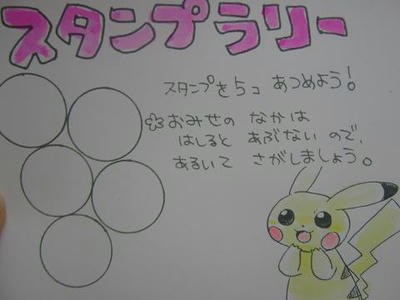 スタンプラリー
スタンプを5コ あつめよう!
おみせの なかは
はしると あぶない ので、
あるいて さがしましょう。